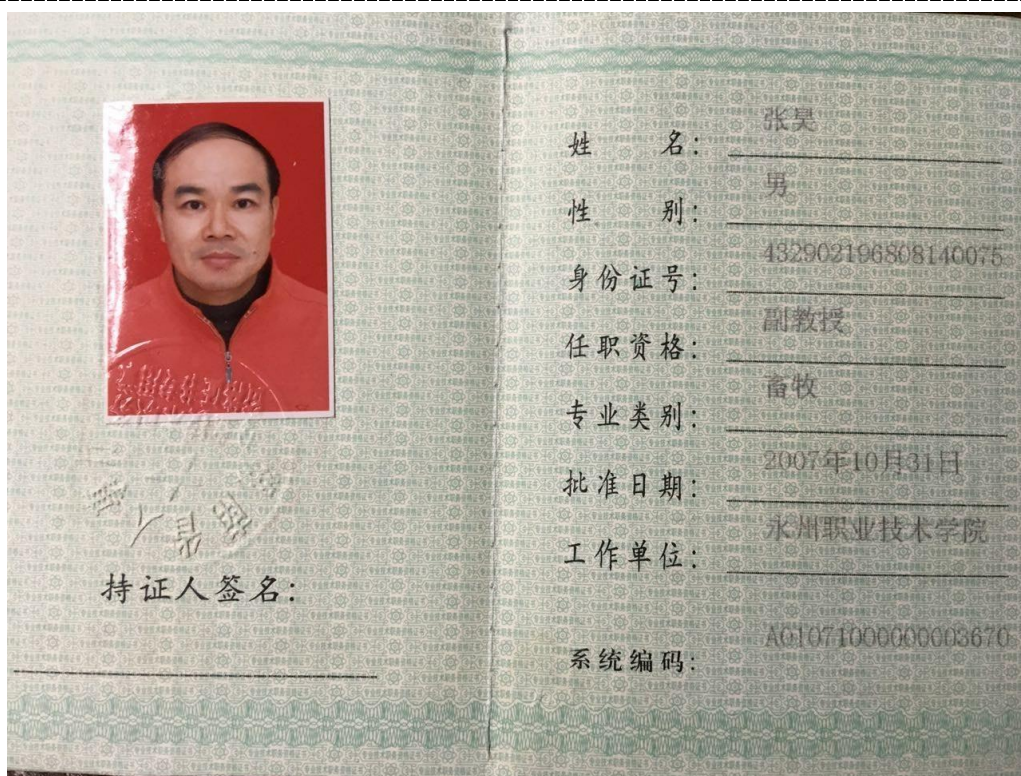 持证人签名：
姓名：张昊
性别：男
身份证号：432902196808140075
任职资格：副教授
专业类别：畜牧
批准日期：2007年10月31日
工作单位：永州职业技术学院
系统编码：A01071000000003670